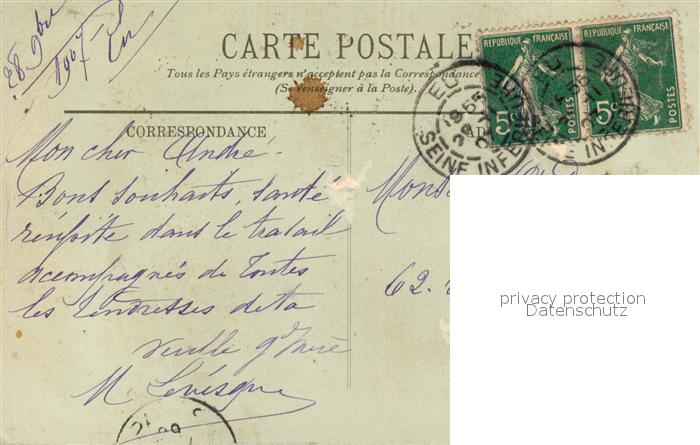 28 9bre
1907 Eu
CARTE POSTALE
Tous les Pays étrangers n'acceptent pas la Correspondance
(Se renseigner à la Poste).
REPUBLIQUE FRANÇAISE
REPUBLIQUE FRANÇAISE
5c POSTES
5c POSTES
EU
SEINE INFRE
CORRESPONDANCE
AD
Mon cher André.
Bons souhaits, santé
réussite dans le travail
acompagnés de toutes
les tendresses de ta
vieille gd mère
M. Levésque
Mons
62.
privacy protection
Datenschutz